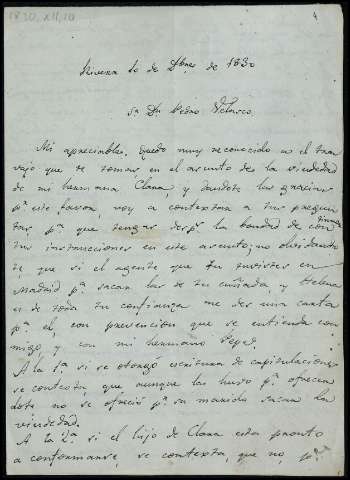 1830, XII, 10
4
Rivera 10 de Dbre de 1830
Sr Dn Pedro Velasco
Mi apreciable: quedo muy reconocido a el tra
vajo que te tomas en el asunto de la viudedad
de mi hermana Clara, y dandote las gracias
pa este favor, voy a contextar a tus pregun
tas, pa que tengas desps la bondad de con
tinuar
tus instrucciones en este asunto; no olvidando
te que si el agente que tu tuvistes en
Madrid pa sacar las de tu cuñada, y
es de toda tu confianza me des una carta
pa el, con prevencion que se entienda con
migo, y con mi hermano Pepe.
A la 1a si se otorgó escritura de capitulaciones
se contexta, que aunque las hubo pa ofrecer
dote no se ofreció pr su marido sacar la
viudedad.
A la 2a si el hijo de Clara esta pronto
a conformarse, se contexta, que no, pr